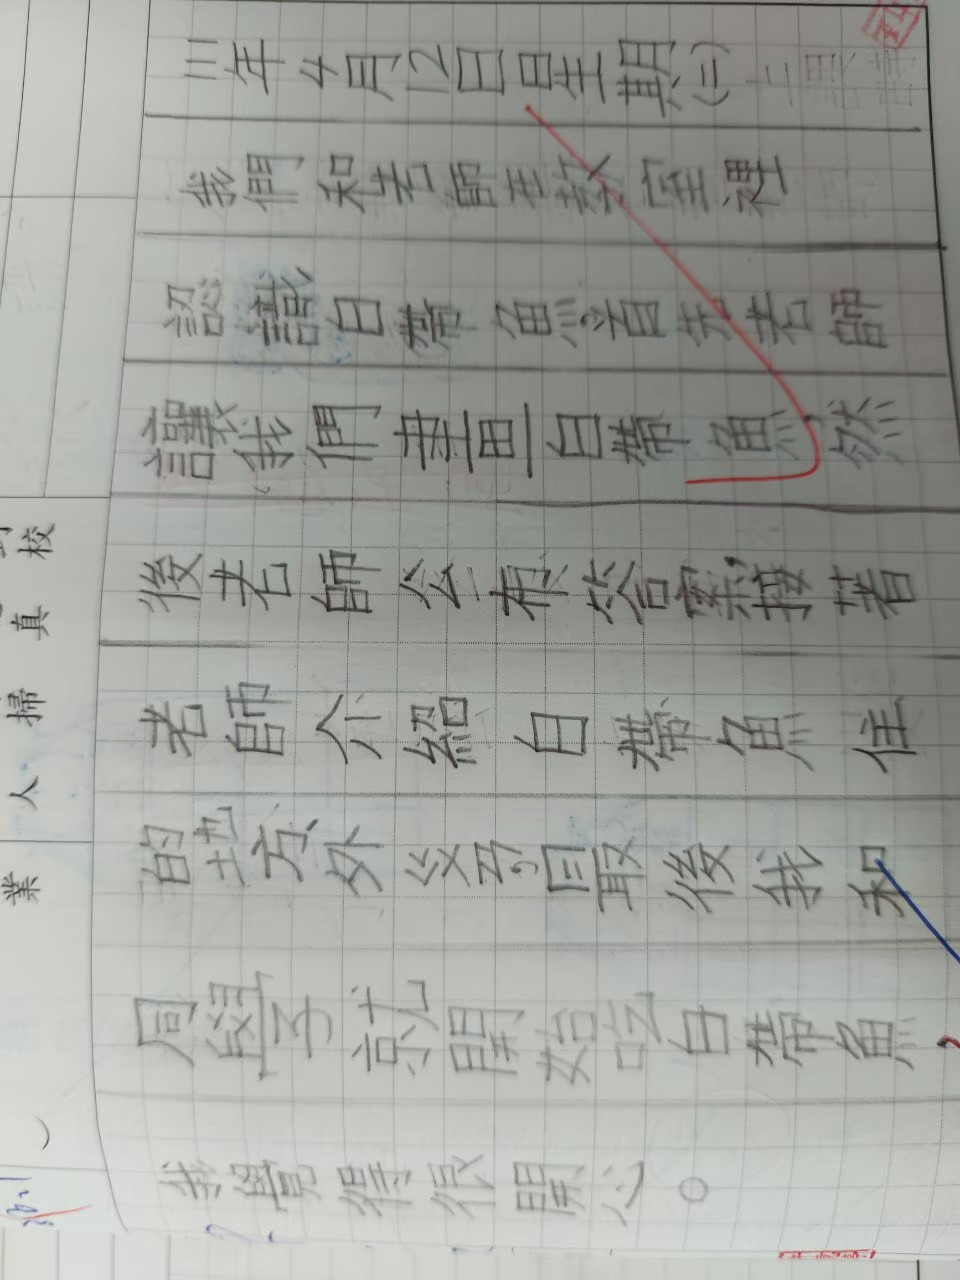 111年4月12日星期(二)
我們和老師在教室裡
認識白帶魚首先老師
讓我們畫一白帶魚然
後老師公布答案接著
老師介紹白帶魚住
的地方外公分目最後我和
同學就開始吃白帶魚
我覺得很開心。
校
真
掃
人
業